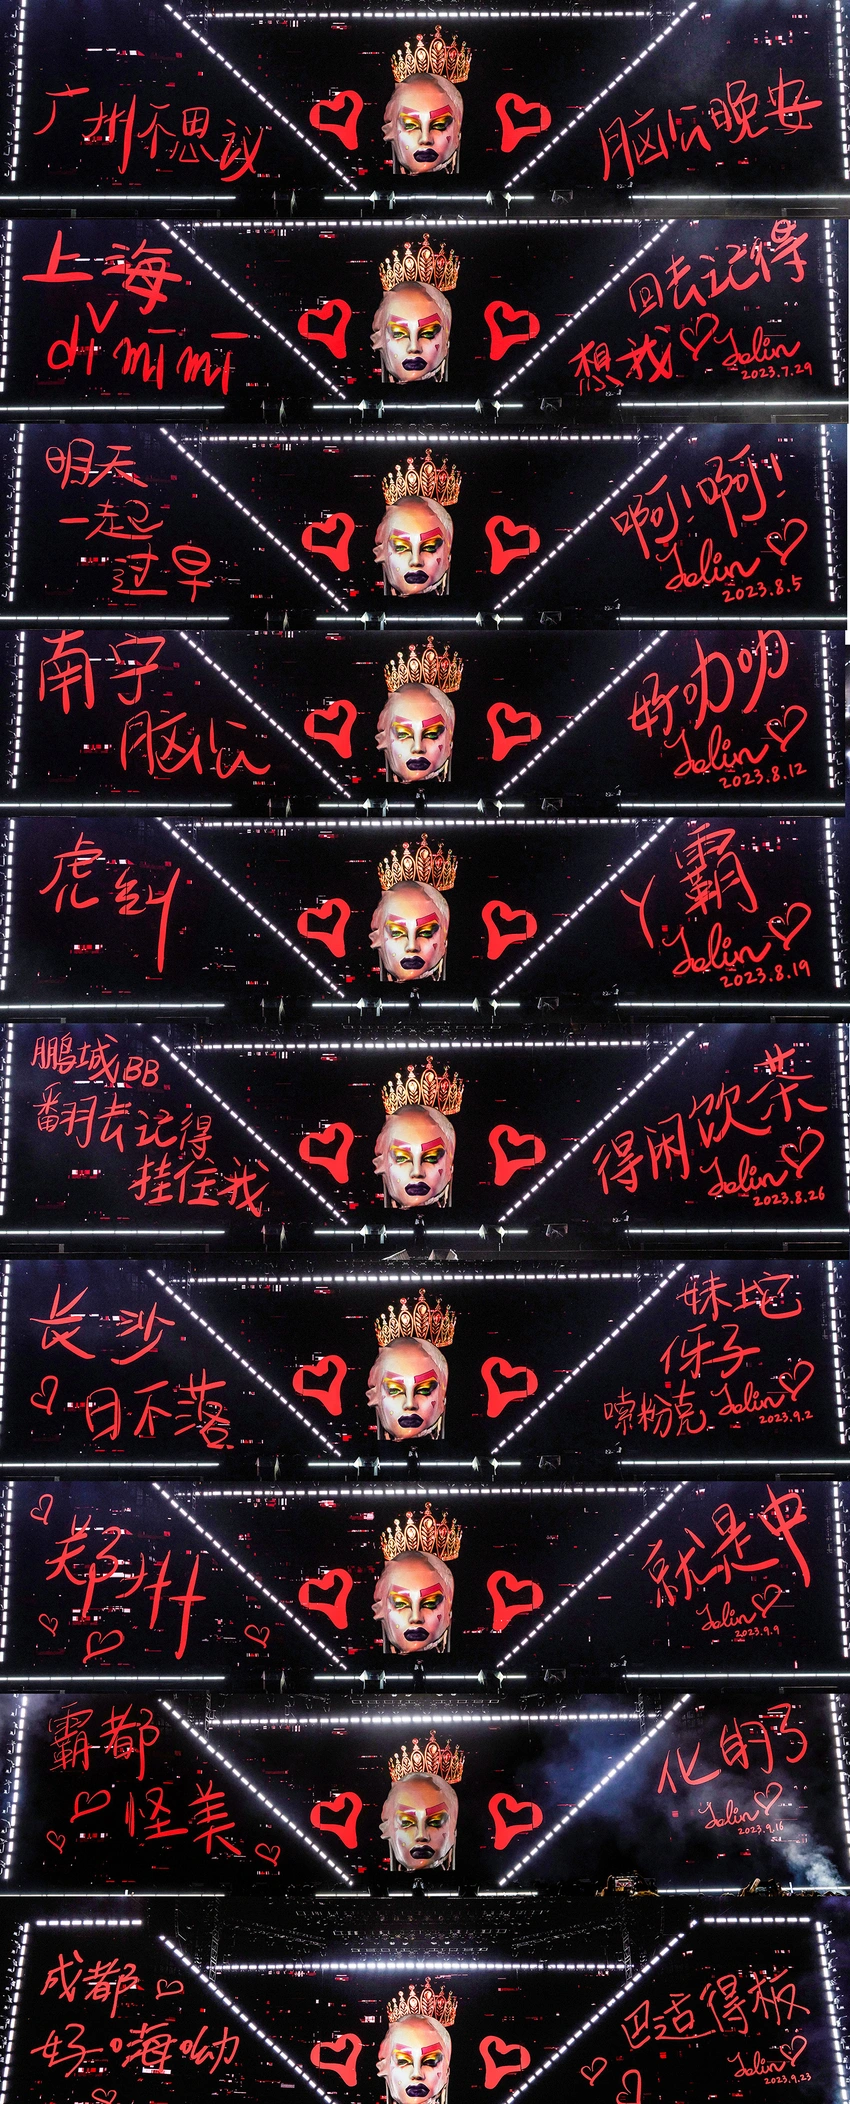 广州不思议
脑公晚安
上海
dǐ mī mī
回去记得
想我
Jolin
2023.7.29
明天
一起
过早
啊!啊!
Jolin
2023.8.5
南宁
脑公
好叻叻
Jolin
2023.8.12
虎纠
丫霸
Jolin
2023.8.19
鹏城BB
翻去记得
挂住我
得闲饮茶
Jolin
2023.8.26
长沙
日不落
妹坨
伢子
嗦粉克
Jolin
2023.9.2
郑州
就是中
Jolin
2023.9.9
霸都
怪美
化的了
Jolin
2023.9.16
成都
好嗨呦
巴适得板
Jolin
2023.9.23